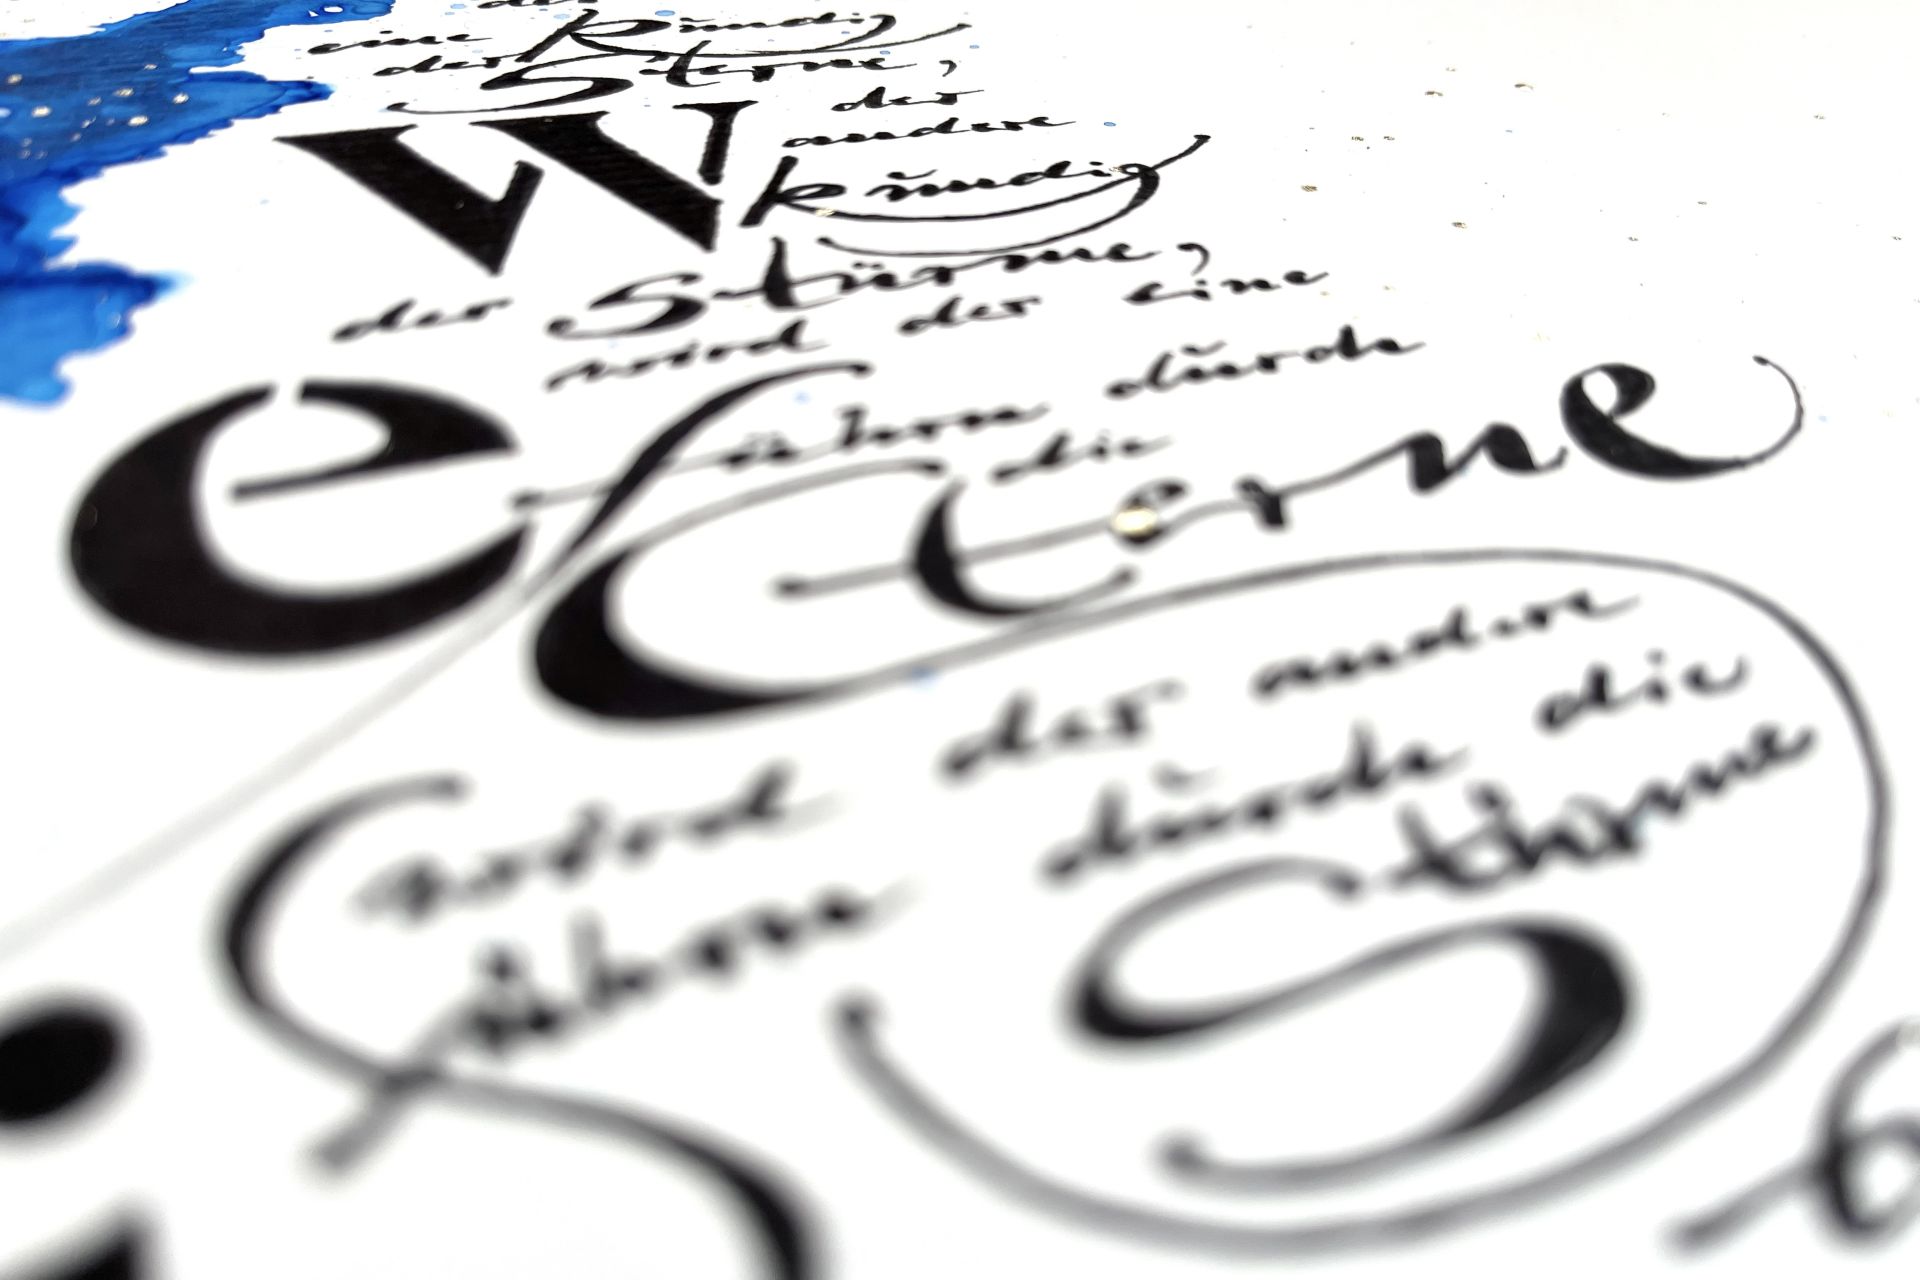 der
eine kundig
der Sterne,
W
der
andere
kundig
der Stürme,
wird der eine
e
führn durch
die
Sterne
wird der andere
führn durch die
Stürme
i